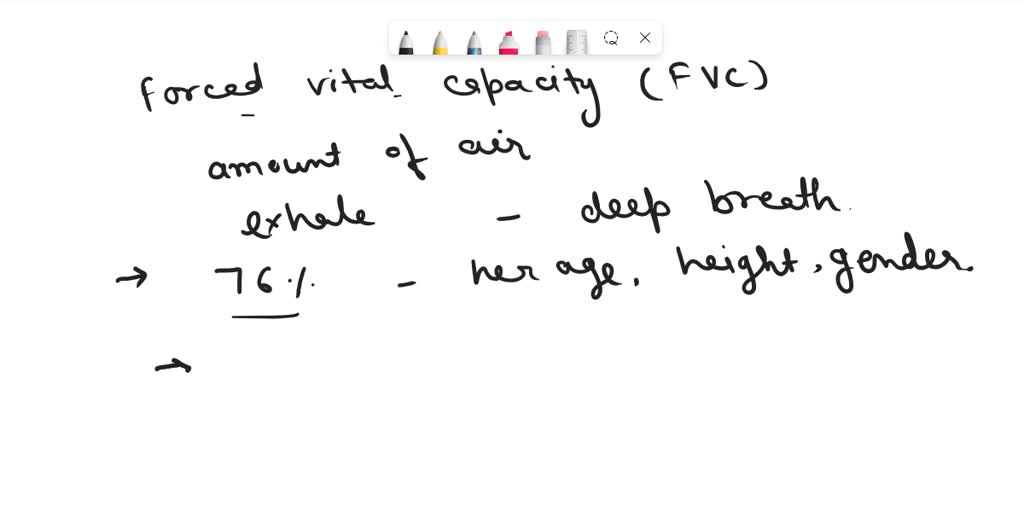 forced vital capacity (FVC)
amount of air
exhale - deep breath.
→ 76% - her age, height, gender.
→